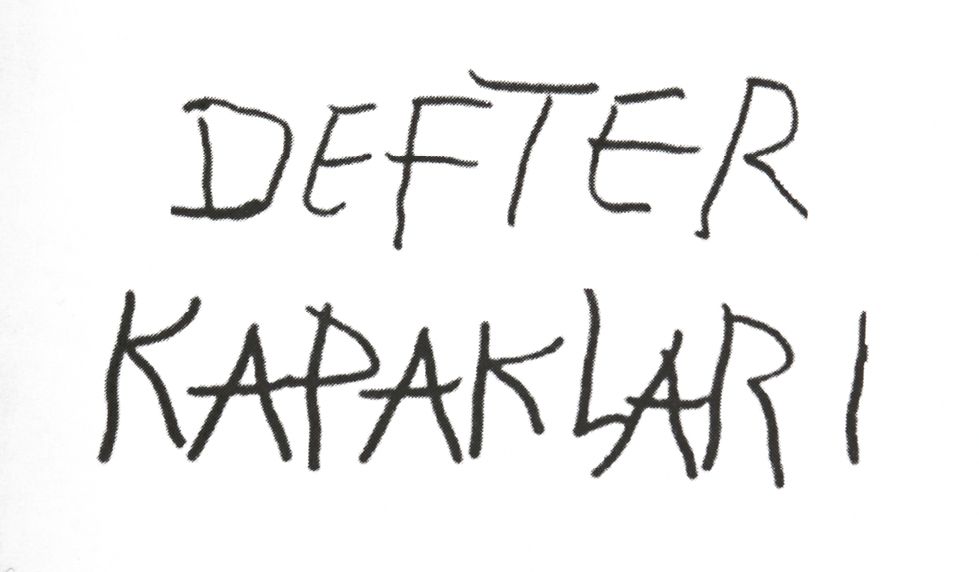 DEFTER
KAPAKLARI